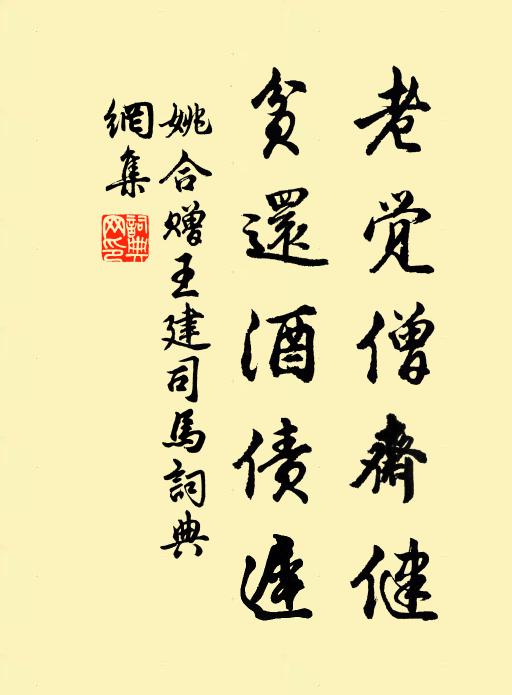 老觉僧齋健
貧還酒债遲
姚合赠王建司馬詞典
網集
詞典
网印